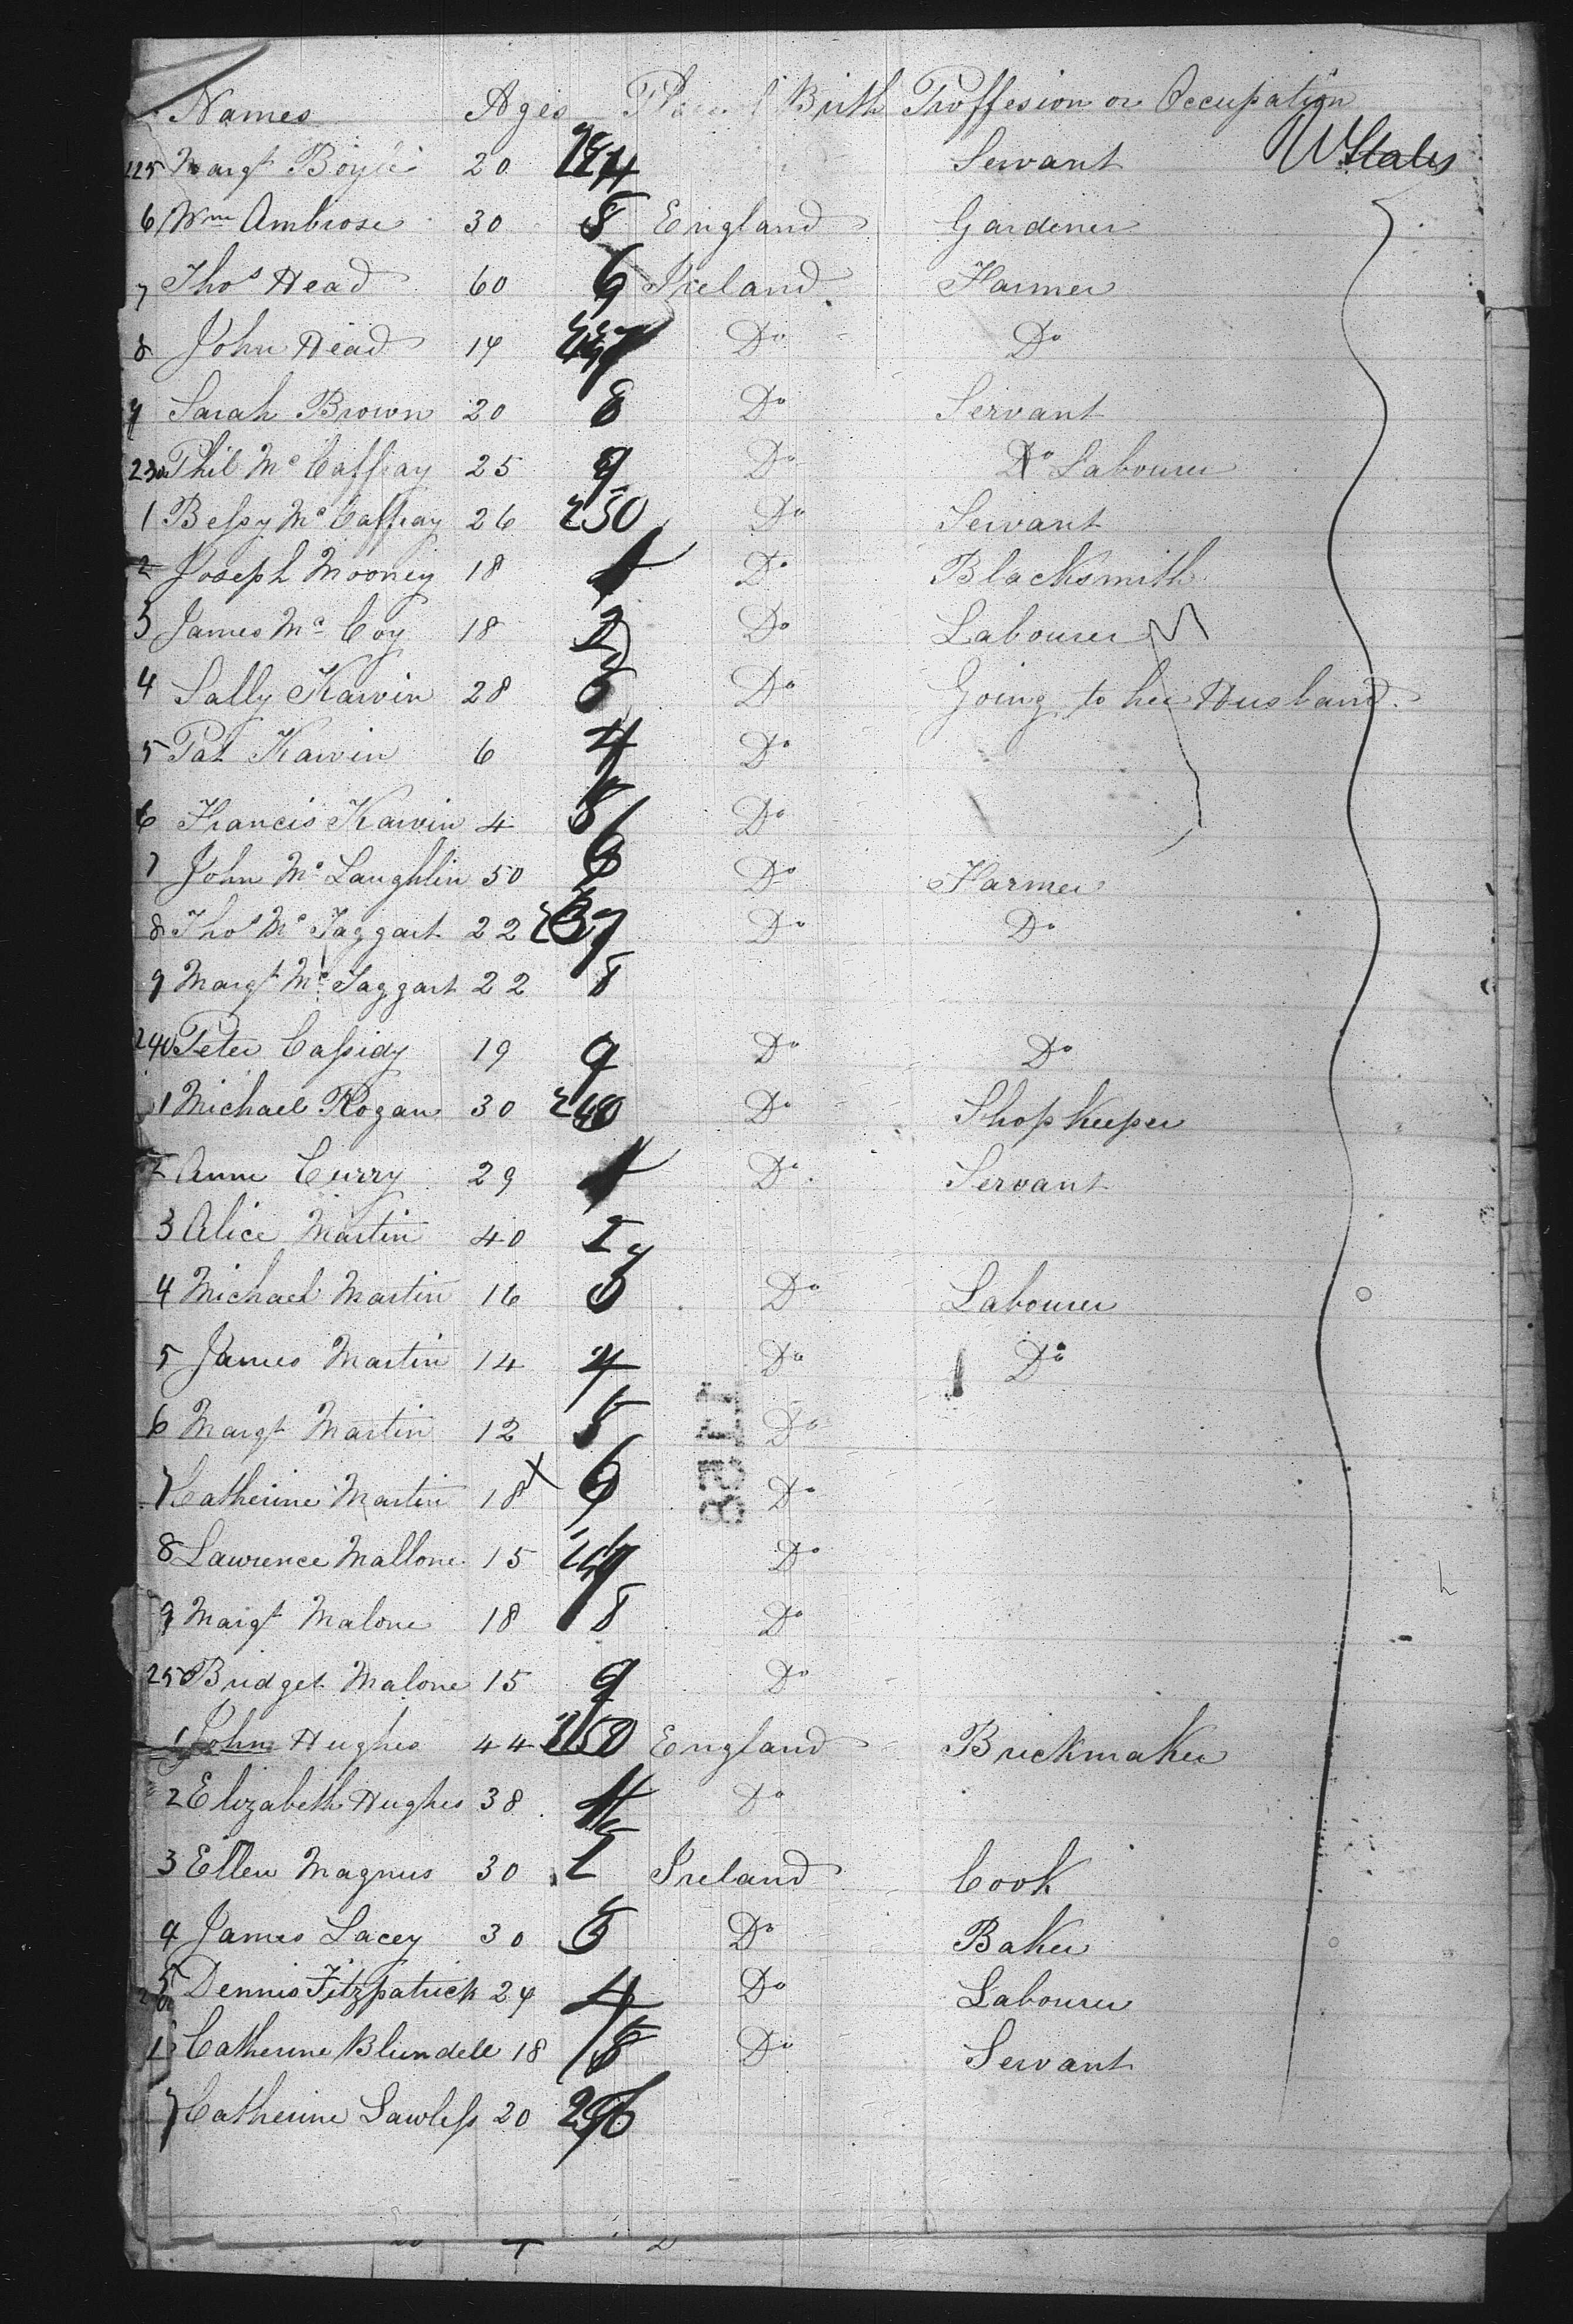 Names Ages Place of Birth Proffesion or Occupation
225 Margt Boyle 20 Servant U States
6 Wm Ambrose 30 England Gardener
7 Thos Head 60 6 Ireland Farmer
8 John Head 14 Do Do
9 Sarah Brown 20 8 Do Servant
230 Phil Mc Caffray 25 9 Do Do Labourer
1 Bessy Mc Caffray 26 230 Do Servant
2 Joseph Mooney 18 1 Do Blacksmith
3 James Mc Coy 18 2 Do Labourer
4 Sally Karvin 28 3 Do Going to her Husband
5 Pat Karvin 6 4 Do
6 Francis Karvin 4 5 Do
7 John Mc Laughlin 50 6 Do Farmer
8 Thos Mc Taggart 22 237 Do Do
9 Margt Mc Taggart 22 8
240 Peter Cassidy 19 9 Do Do
1 Michael Rogan 30 240 Do Shop Keeper
2 Anne Curry 29 1 Do Servant
3 Alice Martin 40 2
4 Michael Martin 16 3 Do Labourer
5 James Martin 14 4 Do Do
6 Margt Martin 12 5 Do
7 Catherine Martin 18 x 6 Do
8 Lawrence Mallone 15 247 Do
9 Margt Malone 18 8 Do
250 Bridget Malone 15 9 Do
1 John Hughes 44 250 England Brickmaker
2 Elizabeth Hughes 38 1 Do
3 Ellen Magnus 30 2 Ireland Cook
4 James Lacey 30 3 Do Baker
5 Dennis Fitzpatrick 24 4 Do Labourer
Catherine Blundell 18 5 Do Servant
7 Catherine Lawless 20 256